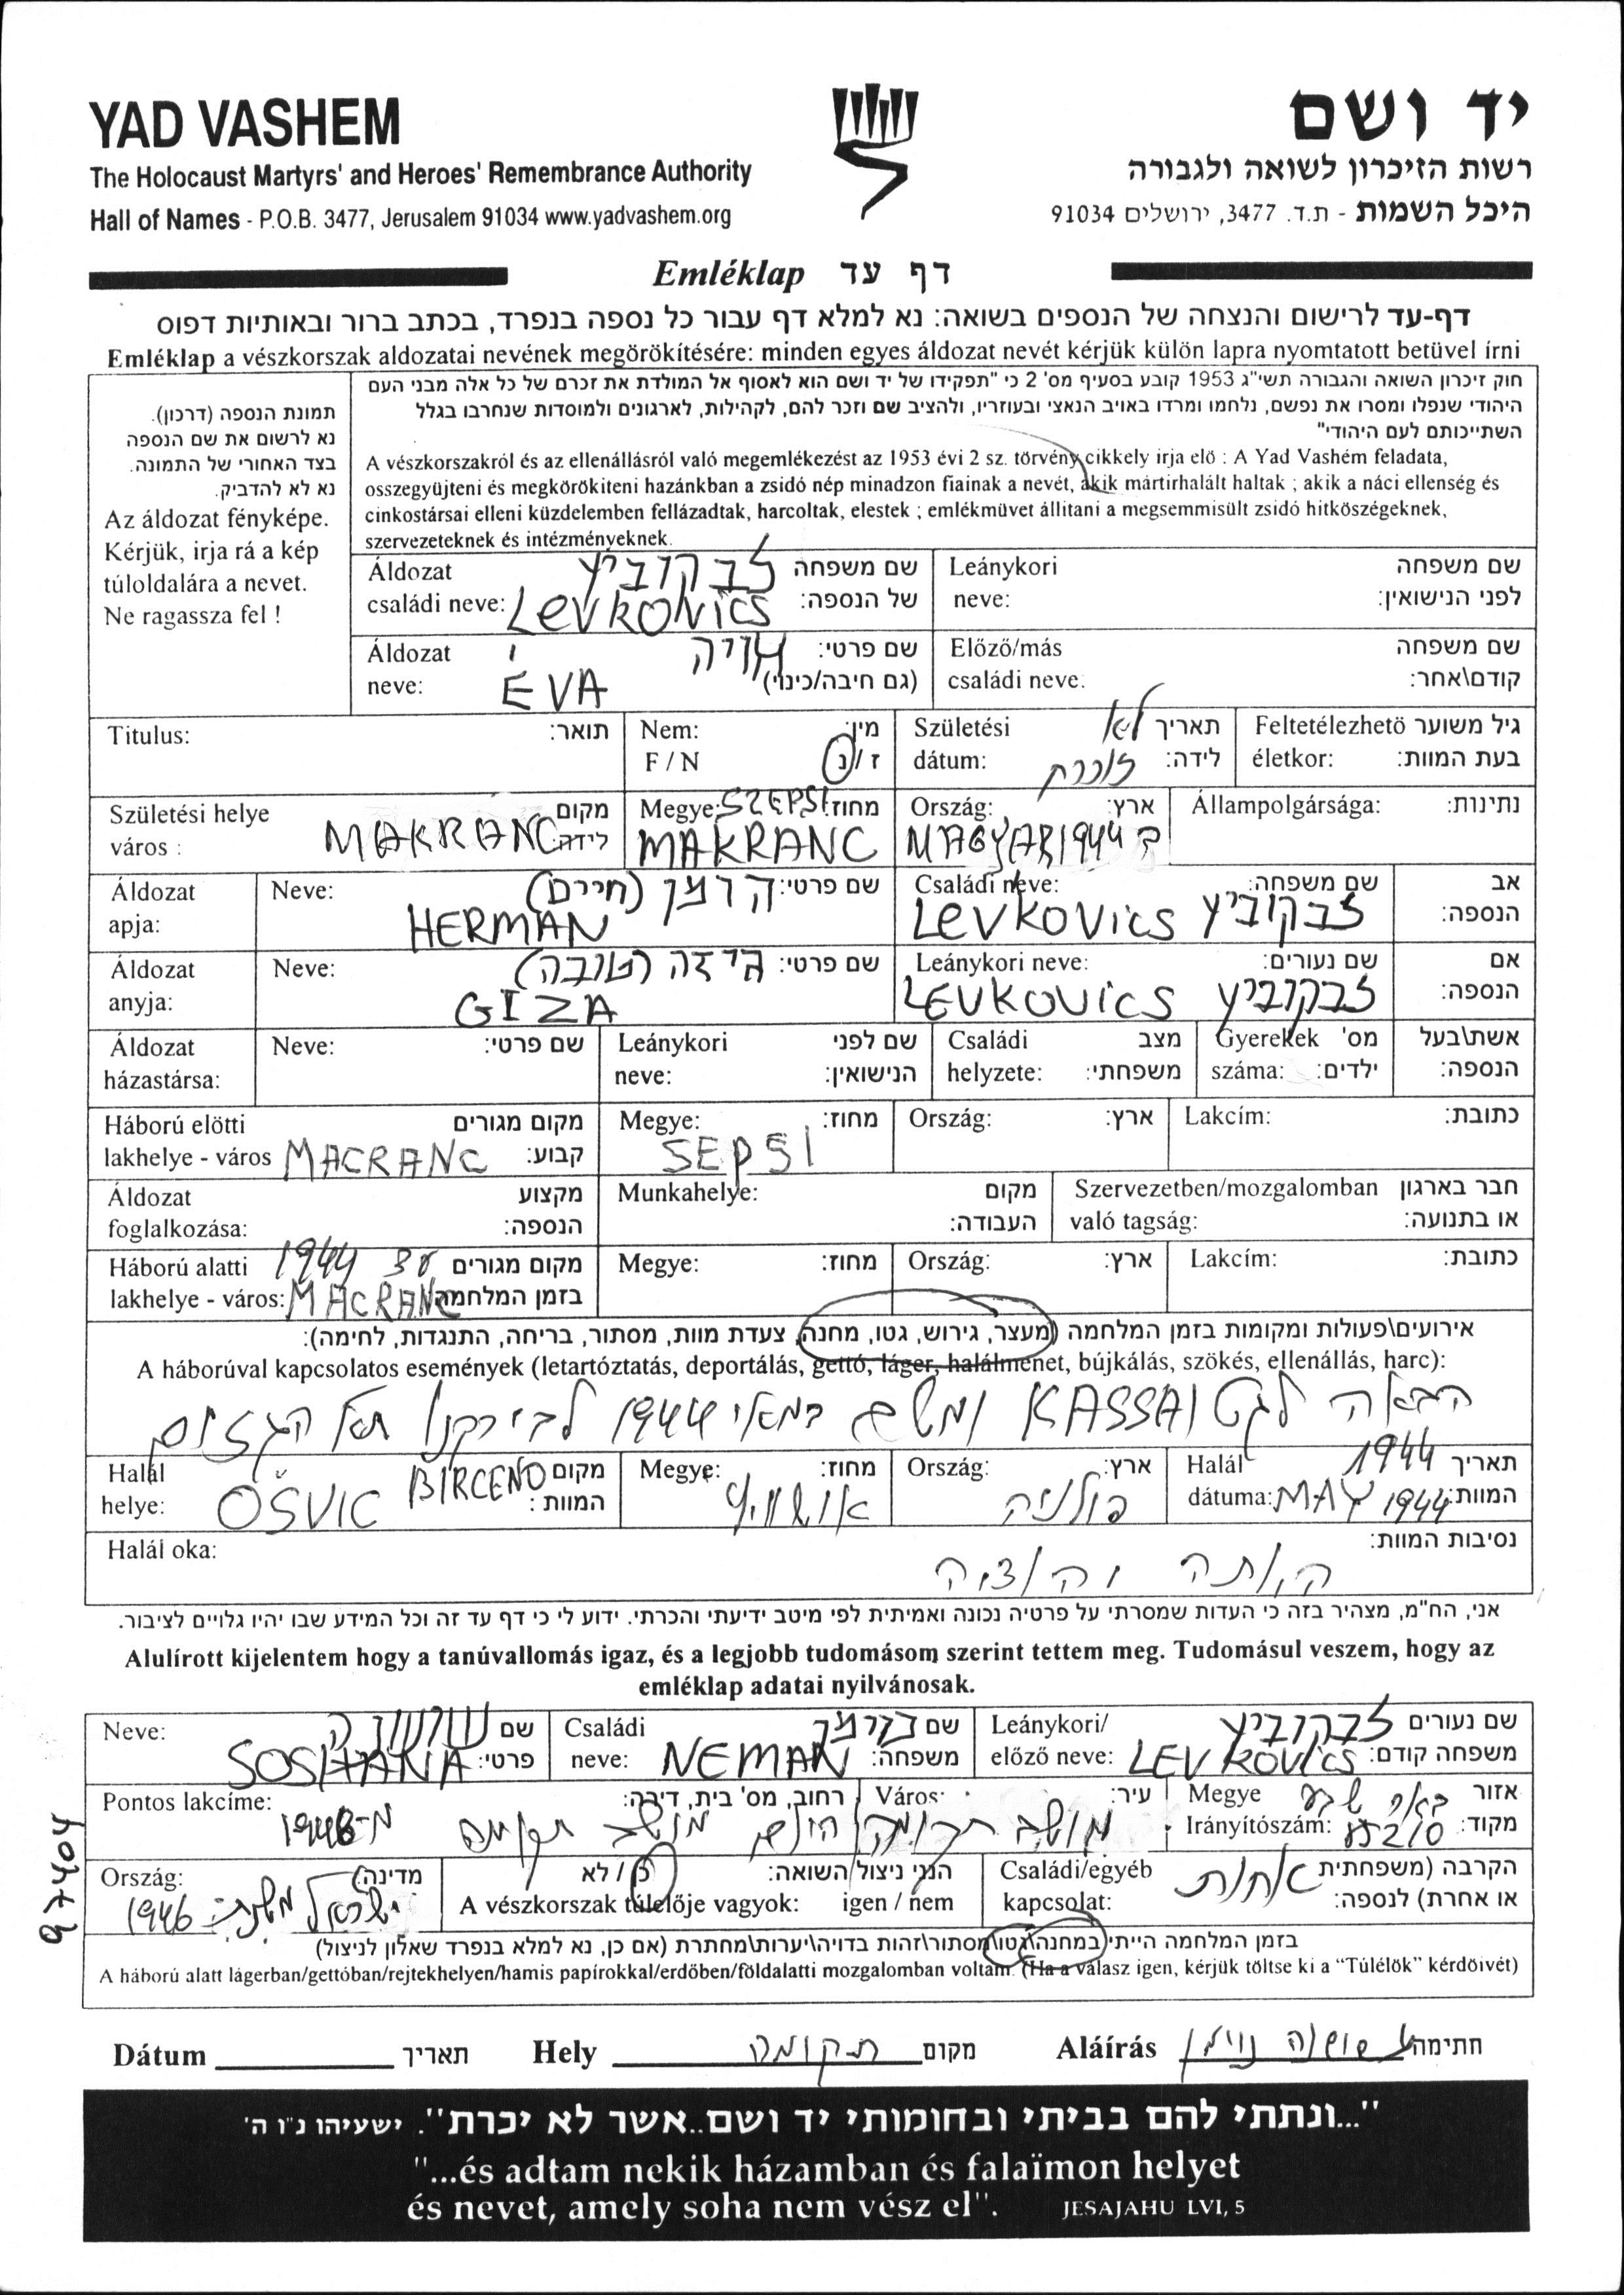 YAD VASHEM
The Holocaust Martyrs' and Heroes' Remembrance Authority
Hall of Names - P.O.B. 3477, Jerusalem 91034 www.yadvashem.org
יד ושם
רשות הזיכרון לשואה ולגבורה
היכל השמות - ת.ד. 3477, ירושלים 91034
Emléklap דף עד
דף-עד לרישום והנצחה של הנספים בשואה: נא למלא דף עבור כל נספה בנפרד, בכתב ברור ובאותיות דפוס
Emléklap a vészkorszak aldozatai nevének megörökítésére: minden egyes áldozat nevét kérjük külön lapra nyomtatott betüvel írni
תמונת הנספה (דרכון).
נא לרשום את שם הנספה
בצד האחורי של התמונה.
נא לא להדביק.
Az áldozat fényképe.
Kérjük, irja rá a kép
túloldalára a nevet.
Ne ragassza fel !
חוק זיכרון השואה והגבורה תשי"ג 1953 קובע בסעיף מס' 2 כי "תפקידו של יד ושם הוא לאסוף אל המולדת את זכרם של כל אלה מבני העם
היהודי שנפלו ומסרו את נפשם, נלחמו ומרדו באויב הנאצי ובעוזריו, ולהציב שם וזכר להם, לקהילות, לארגונים ולמוסדות שנחרבו בגלל
השתייכותם לעם היהודי"
A vészkorszakról és az ellenállásról való megemlékezést az 1953 évi 2 sz. törvény cikkely irja elö : A Yad Vashem feladata,
osszegyüjteni és megkörökiteni hazánkban a zsidó nép minadzon fiainak a nevét, akik mártirhalált haltak ; akik a náci ellenség és
cinkostársai elleni küzdelemben fellázadtak, harcoltak, elestek ; emlékmüvet állitani a megsemmisült zsidó hitköszégeknek,
szervezeteknek és intézményeknek.
Áldozat családi neve: Levkovics לבקוביץ שם משפחה של הנספה:
Leánykori neve: שם משפחה לפני הנישואין:
Áldozat neve: ÉVA אויה שם פרטי: (גם חיבה/כינוי)
Előző/más családi neve: שם משפחה קודם\אחר:
Titulus: תואר:
Nem: F / N מין: ז / נ
Születési dátum: תאריך לידה: לא זוכרת
Feltetélezhetö életkor: גיל משוער בעת המוות:
Születési helye város : MAKRANC מקום לידה:
Megye: SZEPSI MAKRANC מחוז:
Ország: MAGYAR 1944 ארץ:
Állampolgársága: נתינות:
Áldozat apja: Neve: HERMAN הרמן (חיים) שם פרטי:
Családi neve: Levkovics לבקוביץ שם משפחה: אב הנספה:
Áldozat anyja: Neve: GIZA גיזה (טובה) שם פרטי:
Leánykori neve: LEVKOVICS לבקוביץ שם נעורים: אם הנספה:
Áldozat házastársa: Neve: שם פרטי:
Leánykori neve: שם לפני הנישואין:
Családi helyzete: מצב משפחתי:
Gyerekek száma: מס' ילדים: אשת\בעל הנספה:
Háború elötti lakhelye - város MACRANC מקום מגורים קבוע:
Megye: SEPSI מחוז:
Ország: ארץ:
Lakcím: כתובת:
Áldozat foglalkozása: מקצוע הנספה:
Munkahelye: מקום העבודה:
Szervezetben/mozgalomban való tagság: חבר בארגון או בתנועה:
Háború alatti lakhelye - város: עד 1944 MACRANC מקום מגורים בזמן המלחמה:
Megye: מחוז:
Ország: ארץ:
Lakcím: כתובת:
אירועים\פעולות ומקומות בזמן המלחמה (מעצר, גירוש, גטו, מחנה, צעדת מוות, מסתור, בריחה, התנגדות, לחימה):
A háborúval kapcsolatos események (letartóztatás, deportálás, gettó, láger, halálmenet, bújkálás, szökés, ellenállás, harc):
הבאה לגטו KASSA ומשם במאי 1944 לבירקנו תא הגזים
Halál helye: OŠVIC BIRCENO מקום המוות :
Megye: אושוויץ מחוז:
Ország: פולניה ארץ:
Halál dátuma: MAY 1944 1944 תאריך המוות:
Halál oka: נסיבות המוות:
אני, הח"מ, מצהיר בזה כי העדות שמסרתי על פרטיה נכונה ואמיתית לפי מיטב ידיעתי והכרתי. ידוע לי כי דף עד זה וכל המידע שבו יהיו גלויים לציבור.
Alulírott kijelentem hogy a tanúvallomás igaz, és a legjobb tudomásom szerint tettem meg. Tudomásul veszem, hogy az
emléklap adatai nyilvánosak.
Neve: SOSHANA שושנה שם פרטי:
Családi neve: NEMAN שם משפחה:
Leánykori/ előző neve: LEVKOVICS לבקוביץ שם נעורים משפחה קודם:
Pontos lakcíme: מ-1948 מושב תקומה רחוב, מס' בית, דירה:
Város: מושב תקומה עיר:
Megye Irányítószám: באר שבע 85210 אזור מקוד:
Ország: ישראל משנת 1946 מדינה:
הנני ניצול השואה: כן / לא
A vészkorszak túlelője vagyok: igen / nem
Családi/egyéb kapcsolat: אחות הקרבה (משפחתית או אחרת) לנספה:
בזמן המלחמה הייתי במחנה\גטו\מסתור\זהות בדויה\יערות\מחתרת (אם כן, נא למלא בנפרד שאלון לניצול)
A háború alatt lágerban/gettóban/rejtekhelyen/hamis papírokkal/erdőben/földalatti mozgalomban voltam. (Ha a válasz igen, kérjük töltse ki a "Túlélök" kérdöivét)
97404
Dátum תאריך Hely תקומה מקום Aláírás שושנה נוימן חתימה
"...ונתתי להם בביתי ובחומותי יד ושם..אשר לא יכרת". ישעיהו נ"ו ה'
"...és adtam nekik házamban és falaïmon helyet
és nevet, amely soha nem vész el". JESAJAHU LVI, 5